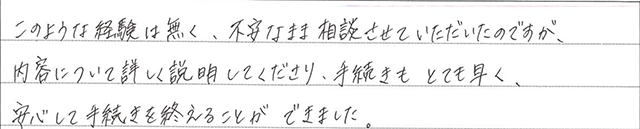 このような経験は無く、不安なまま相談させていただいたのですが、
内容について詳しく説明してくださり、手続きも とても早く、
安心して手続きを終えることが できました。